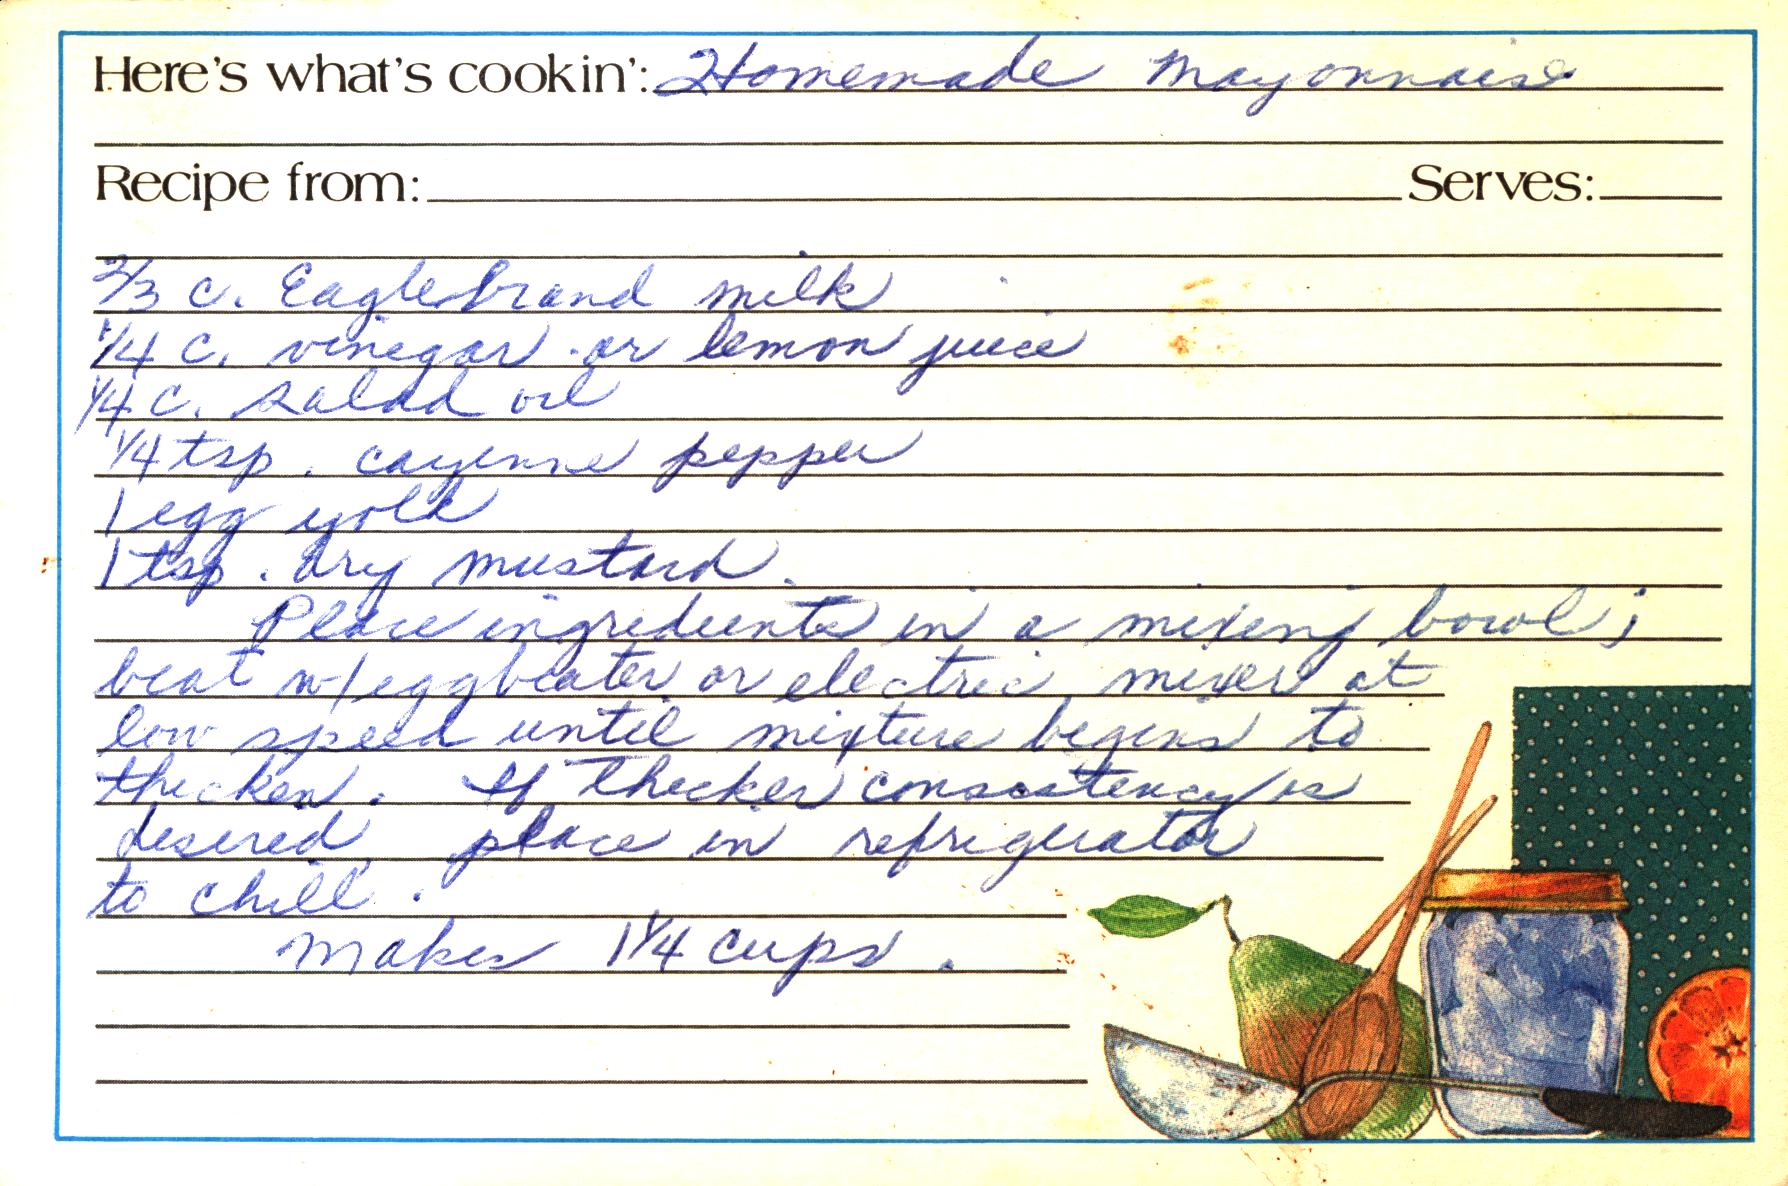 Here's what's cookin': Homemade Mayonnaise
Recipe from: Serves:
2/3 c. Eaglebrand milk
1/4 c. vinegar or lemon juice
1/4 c. salad oil
1/4 tsp. cayenne pepper
1 egg yolk
1 tsp. dry mustard.
Place ingredients in a mixing bowl;
beat w/eggbeater or electric mixer at
low speed until mixture begins to
thicken. If thicker consistency is
desired, place in refrigerator
to chill.
Makes 1 1/4 cups.